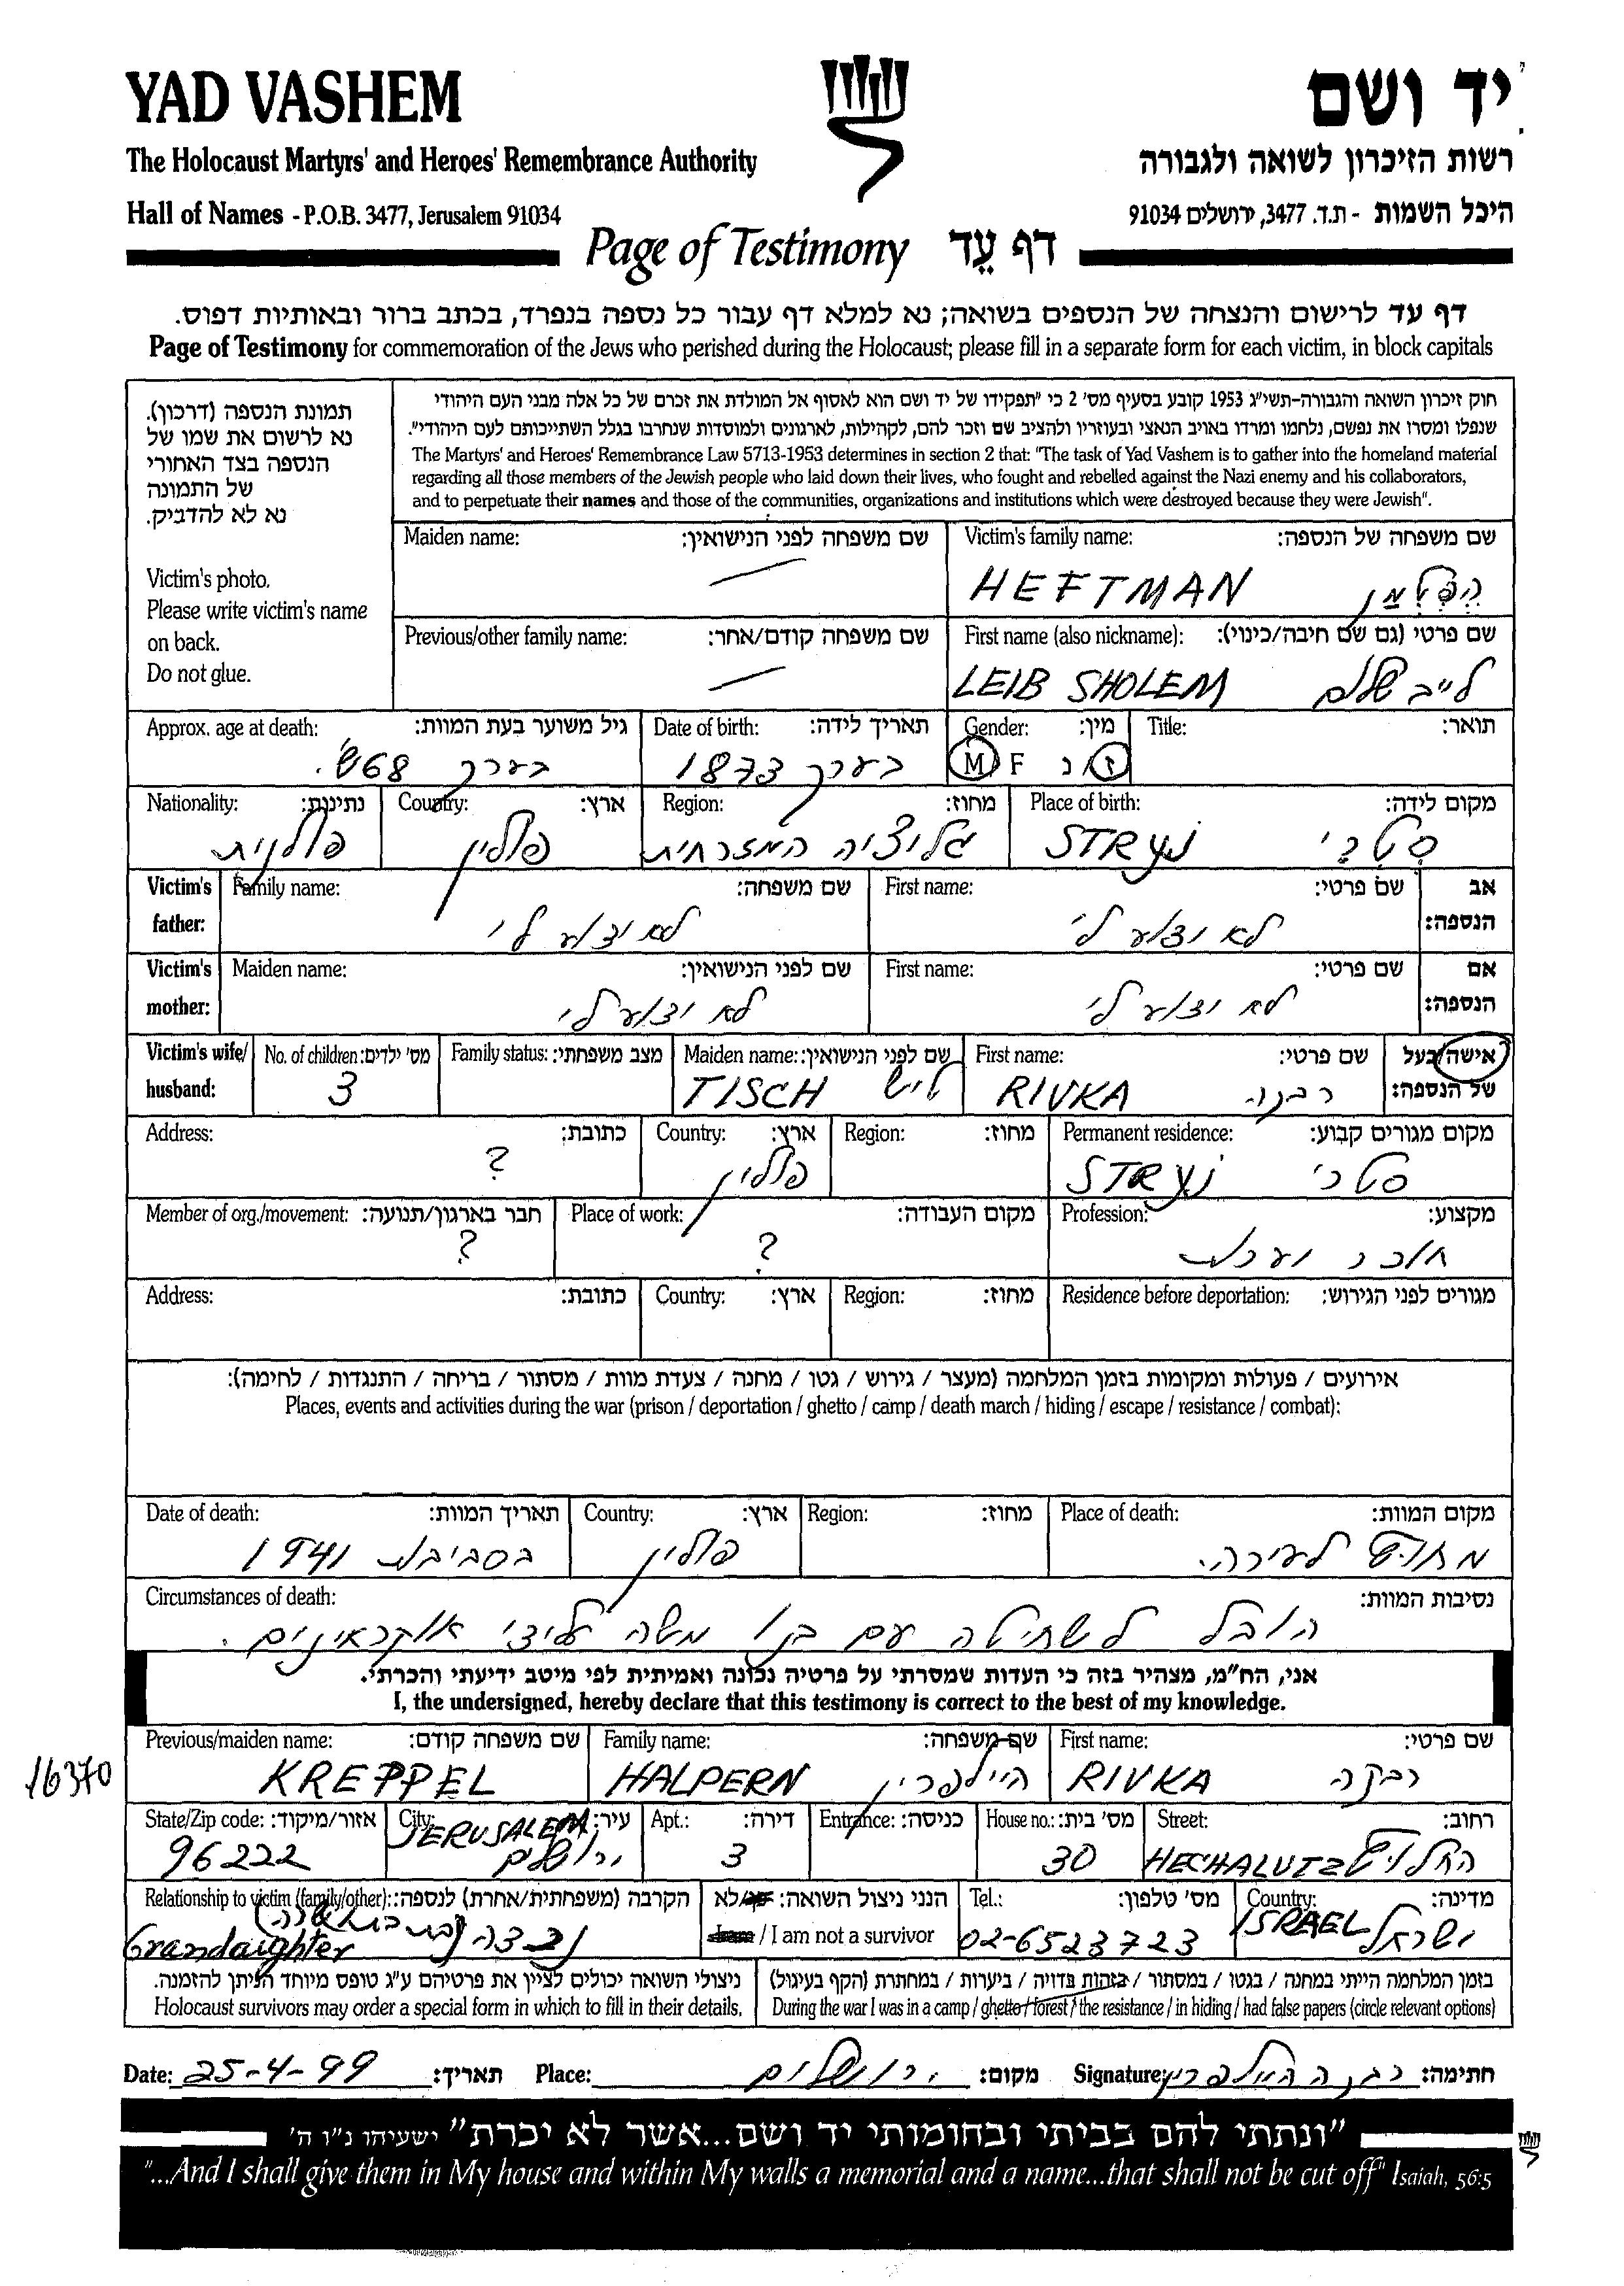 YAD VASHEM
יד ושם
The Holocaust Martyrs' and Heroes' Remembrance Authority
רשות הזיכרון לשואה ולגבורה
Hall of Names - P.O.B. 3477, Jerusalem 91034
היכל השמות - ת.ד. 3477, ירושלים 91034
Page of Testimony דף עֵד
דף עד לרישום והנצחה של הנספים בשואה; נא למלא דף עבור כל נספה בנפרד, בכתב ברור ובאותיות דפוס.
Page of Testimony for commemoration of the Jews who perished during the Holocaust; please fill in a separate form for each victim, in block capitals
תמונת הנספה (דרכון).
נא לרשום את שמו של
הנספה בצד האחורי
של התמונה
נא לא להדביק.
Victim's photo.
Please write victim's name
on back.
Do not glue.
חוק זיכרון השואה והגבורה-תשי"ג 1953 קובע בסעיף מס' 2 כי "תפקידו של יד ושם הוא לאסוף אל המולדת את זכרם של כל אלה מבני העם היהודי
שנפלו ומסרו את נפשם, נלחמו ומרדו באויב הנאצי ובעוזריו ולהציב שם וזכר להם, לקהילות, לארגונים ולמוסדות שנחרבו בגלל השתייכותם לעם היהודי".
The Martyrs' and Heroes' Remembrance Law 5713-1953 determines in section 2 that: "The task of Yad Vashem is to gather into the homeland material
regarding all those members of the Jewish people who laid down their lives, who fought and rebelled against the Nazi enemy and his collaborators,
and to perpetuate their names and those of the communities, organizations and institutions which were destroyed because they were Jewish".
Victim's family name: שם משפחה של הנספה:
HEFTMAN הֶפְטְמַן
Maiden name: שם משפחה לפני הנישואין:
First name (also nickname): שם פרטי (גם שם חיבה/כינוי):
LEIB SHOLEM לייב שולם
Previous/other family name: שם משפחה קודם/אחר:
Title: תואר:
Gender: מין:
M F ז/נ
Date of birth: תאריך לידה:
בערך 1873
Approx. age at death: גיל משוער בעת המוות:
בערך 68 ש'.
Place of birth: מקום לידה:
STRYJ סטרי
Region: מחוז:
גליציה המזרחית
Country: ארץ:
פולין
Nationality: נתינות:
פולנית
Victim's father: אב הנספה:
First name: שם פרטי:
לא ידוע לי
Family name: שם משפחה:
לא ידוע לי
Victim's mother: אם הנספה:
First name: שם פרטי:
לא ידוע לי
Maiden name: שם לפני הנישואין:
לא ידוע לי
Victim's wife/ husband: אישה/בעל של הנספה:
First name: שם פרטי:
RIVKA רבקה
Maiden name: שם לפני הנישואין:
TISCH טיש
Family status: מצב משפחתי:
No. of children: מס' ילדים:
3
Permanent residence: מקום מגורים קבוע:
STRYJ סטרי
Region: מחוז:
Country: ארץ:
פולין
Address: כתובת:
?
Profession: מקצוע:
Place of work: מקום העבודה:
?
Member of org./movement: חבר בארגון/תנועה:
?
Residence before deportation: מגורים לפני הגירוש:
Region: מחוז:
Country: ארץ:
Address: כתובת:
אירועים / פעולות ומקומות בזמן המלחמה (מעצר / גירוש / גטו / מחנה / צעדת מוות / מסתור / בריחה / התנגדות / לחימה):
Places, events and activities during the war (prison / deportation / ghetto / camp / death march / hiding / escape / resistance / combat):
Place of death: מקום המוות:
מחוץ לעירה.
Region: מחוז:
Country: ארץ:
פולין
Date of death: תאריך המוות:
בסביבות 1941
Circumstances of death: נסיבות המוות:
הובל לשחיטה עם בנו משה ע"י אוקראינים.
אני, הח"מ, מצהיר בזה כי העדות שמסרתי על פרטיה נכונה ואמיתית לפי מיטב ידיעתי והכרתי.
I, the undersigned, hereby declare that this testimony is correct to the best of my knowledge.
16370
First name: שם פרטי:
RIVKA רבקה
Family name: שם משפחה:
HALPERN היילפרין
Previous/maiden name: שם משפחה קודם:
KREPPEL
Street: רחוב:
HECHALUTZ החלוץ
House no.: מס' בית:
30
Entrance: כניסה:
Apt.: דירה:
3
City: עיר:
JERUSALEM ירושלים
State/Zip code: אזור/מיקוד:
96222
Country: מדינה:
ISRAEL ישראל
Tel.: מס' טלפון:
02-6523723
הנני ניצול השואה: לא
/ I am not a survivor
Relationship to victim (family/other): הקרבה (משפחתית/אחרת) לנספה:
Grandaighter נכדה
בזמן המלחמה הייתי במחנה / בגטו / במסתור / בזהות בדויה / ביערות / במחתרת (הקף בעיגול)
During the war I was in a camp / ghetto / forest / the resistance / in hiding / had false papers (circle relevant options)
ניצולי השואה יכולים לציין את פרטיהם ע"ג טופס מיוחד הניתן להזמנה.
Holocaust survivors may order a special form in which to fill in their details.
Date: 25-4-99 תאריך: Place: ירושלים מקום: Signature: רבקה היילפרין חתימה:
"ונתתי להם בביתי ובחומותי יד ושם...אשר לא יכרת" ישעיהו נ"ו ה'
"...And I shall give them in My house and within My walls a memorial and a name...that shall not be cut off" Isaiah, 56:5